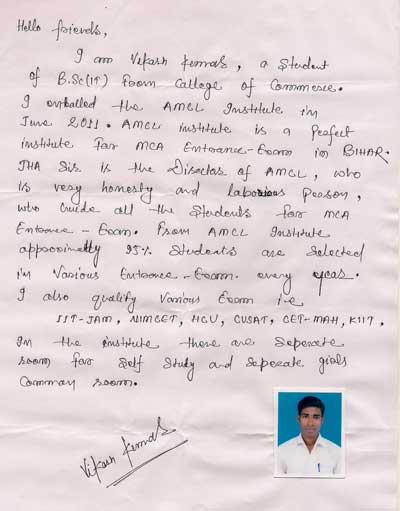 Hello friends,
I am Vikash Kumar, a Student
of B.Sc(IT) From Collage of Commerce.
I enrolled the AMCL Institute in
June 2011. AMCL institute is a Perfect
institute For MCA Entrance-Exam in BIHAR.
JHA Sir is the Director of AMCL, who
is very honesty and laborious person,
who Guide all the Students for MCA
Entrance - Exam. From AMCL Institute
approximetly 95% Students are Selected
in Various Entrance - Exam. every year.
I also qualify Various Exam i.e
IIT-JAM, NIMCET, HCU, CUSAT, CET-MAH, KIIT.
In the institute there are Seperate
room for Self Study and Seperate girls
Comman room.
Vikash Kumar